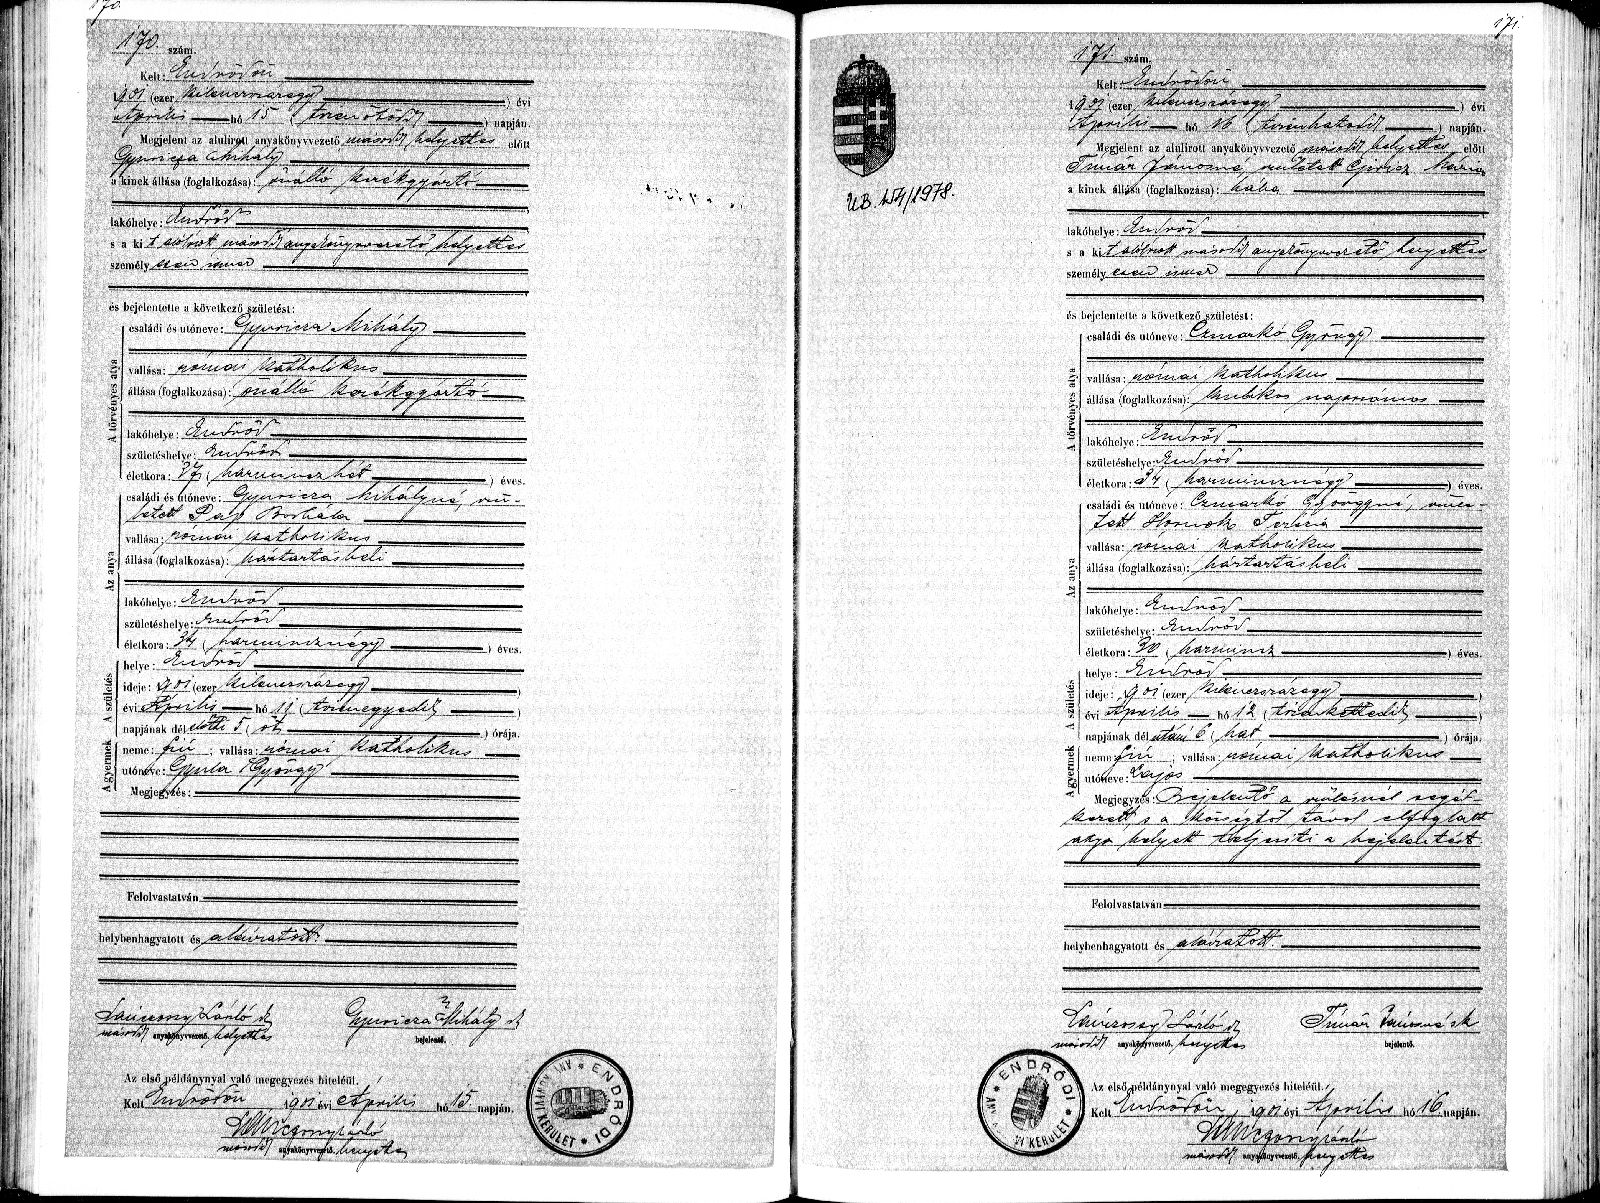 170.
170. szám.
Kelt: Endrődön
1901 (ezer kilenczszázegy) évi
Április hó 15 (tizenötödik) napján.
Megjelent az alulirott anyakönyvvezető második helyettes előtt
Gyuricza Mihály
a kinek állása (foglalkozása): önálló kerékgyártó
lakóhelye: Endrőd
s a kit alólirott második anyakönyvvezető helyettes
személyesen ismer
és bejelentette a következő születést:
A törvényes atya
családi és utóneve: Gyuricza Mihály
vallása: római katholikus
állása (foglalkozása): önálló kerékgyártó
lakóhelye: Endrőd
születéshelye: Endrőd
életkora: 37 (harminczhét) éves.
Az anya
családi és utóneve: Gyuricza Mihályné, szü-
letett Pap Borbála
vallása: római katholikus
állása (foglalkozása): háztartásbeli
lakóhelye: Endrőd
születéshelye: Endrőd
életkora: 34 (harmincznégy) éves.
A születés
helye: Endrőd
ideje: 1901 (ezer kilenczszázegy)
évi Április hó 11 (tizenegyedik)
napjának dél előtti 5 (öt) órája.
A gyermek
neme: fiú; vallása: római katholikus
utóneve: Gyula (György)
Megjegyzés:
Felolvastatván
helybenhagyatott és aláiratott.
László sk
Gyuricza Mihály sk
második anyakönyvvezető, helyettes
bejelentő.
Az első példánynyal való megegyezés hiteléül.
Kelt Endrődön 1901 évi Április hó 15 napján.
László
második anyakönyvvezető, helyettes
ENDRŐDI ANYAKÖNYVI KERÜLET
UB. 454/1978.
171.
171. szám.
Kelt: Endrődön
1901 (ezer kilenczszázegy) évi
Április hó 16 (tizenhatodik) napján.
Megjelent az alulirott anyakönyvvezető második helyettes előtt
Timár Jánosné, született Mária
a kinek állása (foglalkozása): bába
lakóhelye: Endrőd
s a kit alólirott második anyakönyvvezető helyettes
személyesen ismer
és bejelentette a következő születést:
A törvényes atya
családi és utóneve: Czmarkó György
vallása: római katholikus
állása (foglalkozása): kubikos napszámos
lakóhelye: Endrőd
születéshelye: Endrőd
életkora: 34 (harmincznégy) éves.
Az anya
családi és utóneve: Czmarkó Györgyné, szüle-
tett Hornok Terézia
vallása: római katholikus
állása (foglalkozása): háztartásbeli
lakóhelye: Endrőd
születéshelye: Endrőd
életkora: 30 (harmincz) éves.
A születés
helye: Endrőd
ideje: 1901 (ezer kilenczszázegy)
évi Április hó 12 (tizenkettedik)
napjának dél utáni 6 (hat) órája.
A gyermek
neme: fiú; vallása: római katholikus
utóneve: Lajos
Megjegyzés: Bejelentő a szülésnél segéd-
kezett, s a községtől távol elfoglalt
atya helyett teljesíti a bejelentést.
Felolvastatván
helybenhagyatott és aláiratott.
László sk
Timár Jánosné sk
második anyakönyvvezető, helyettes
bejelentő.
Az első példánynyal való megegyezés hiteléül.
Kelt Endrődön 1901 évi Április hó 16 napján.
László
második anyakönyvvezető, helyettes